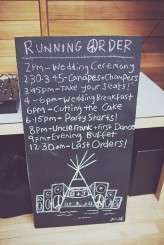 RUNNING ORDER
2PM - Wedding Ceremony
2.30-3.45 - Canapes + Champers
3.45PM - Take your Seats!
4-6PM - Wedding Breakfast
6PM - Cutting the Cake
6.15PM - Party Starts!
8PM - Uncle Frank + First Dance
9PM - Evening Buffet
12.30AM - Last Orders!